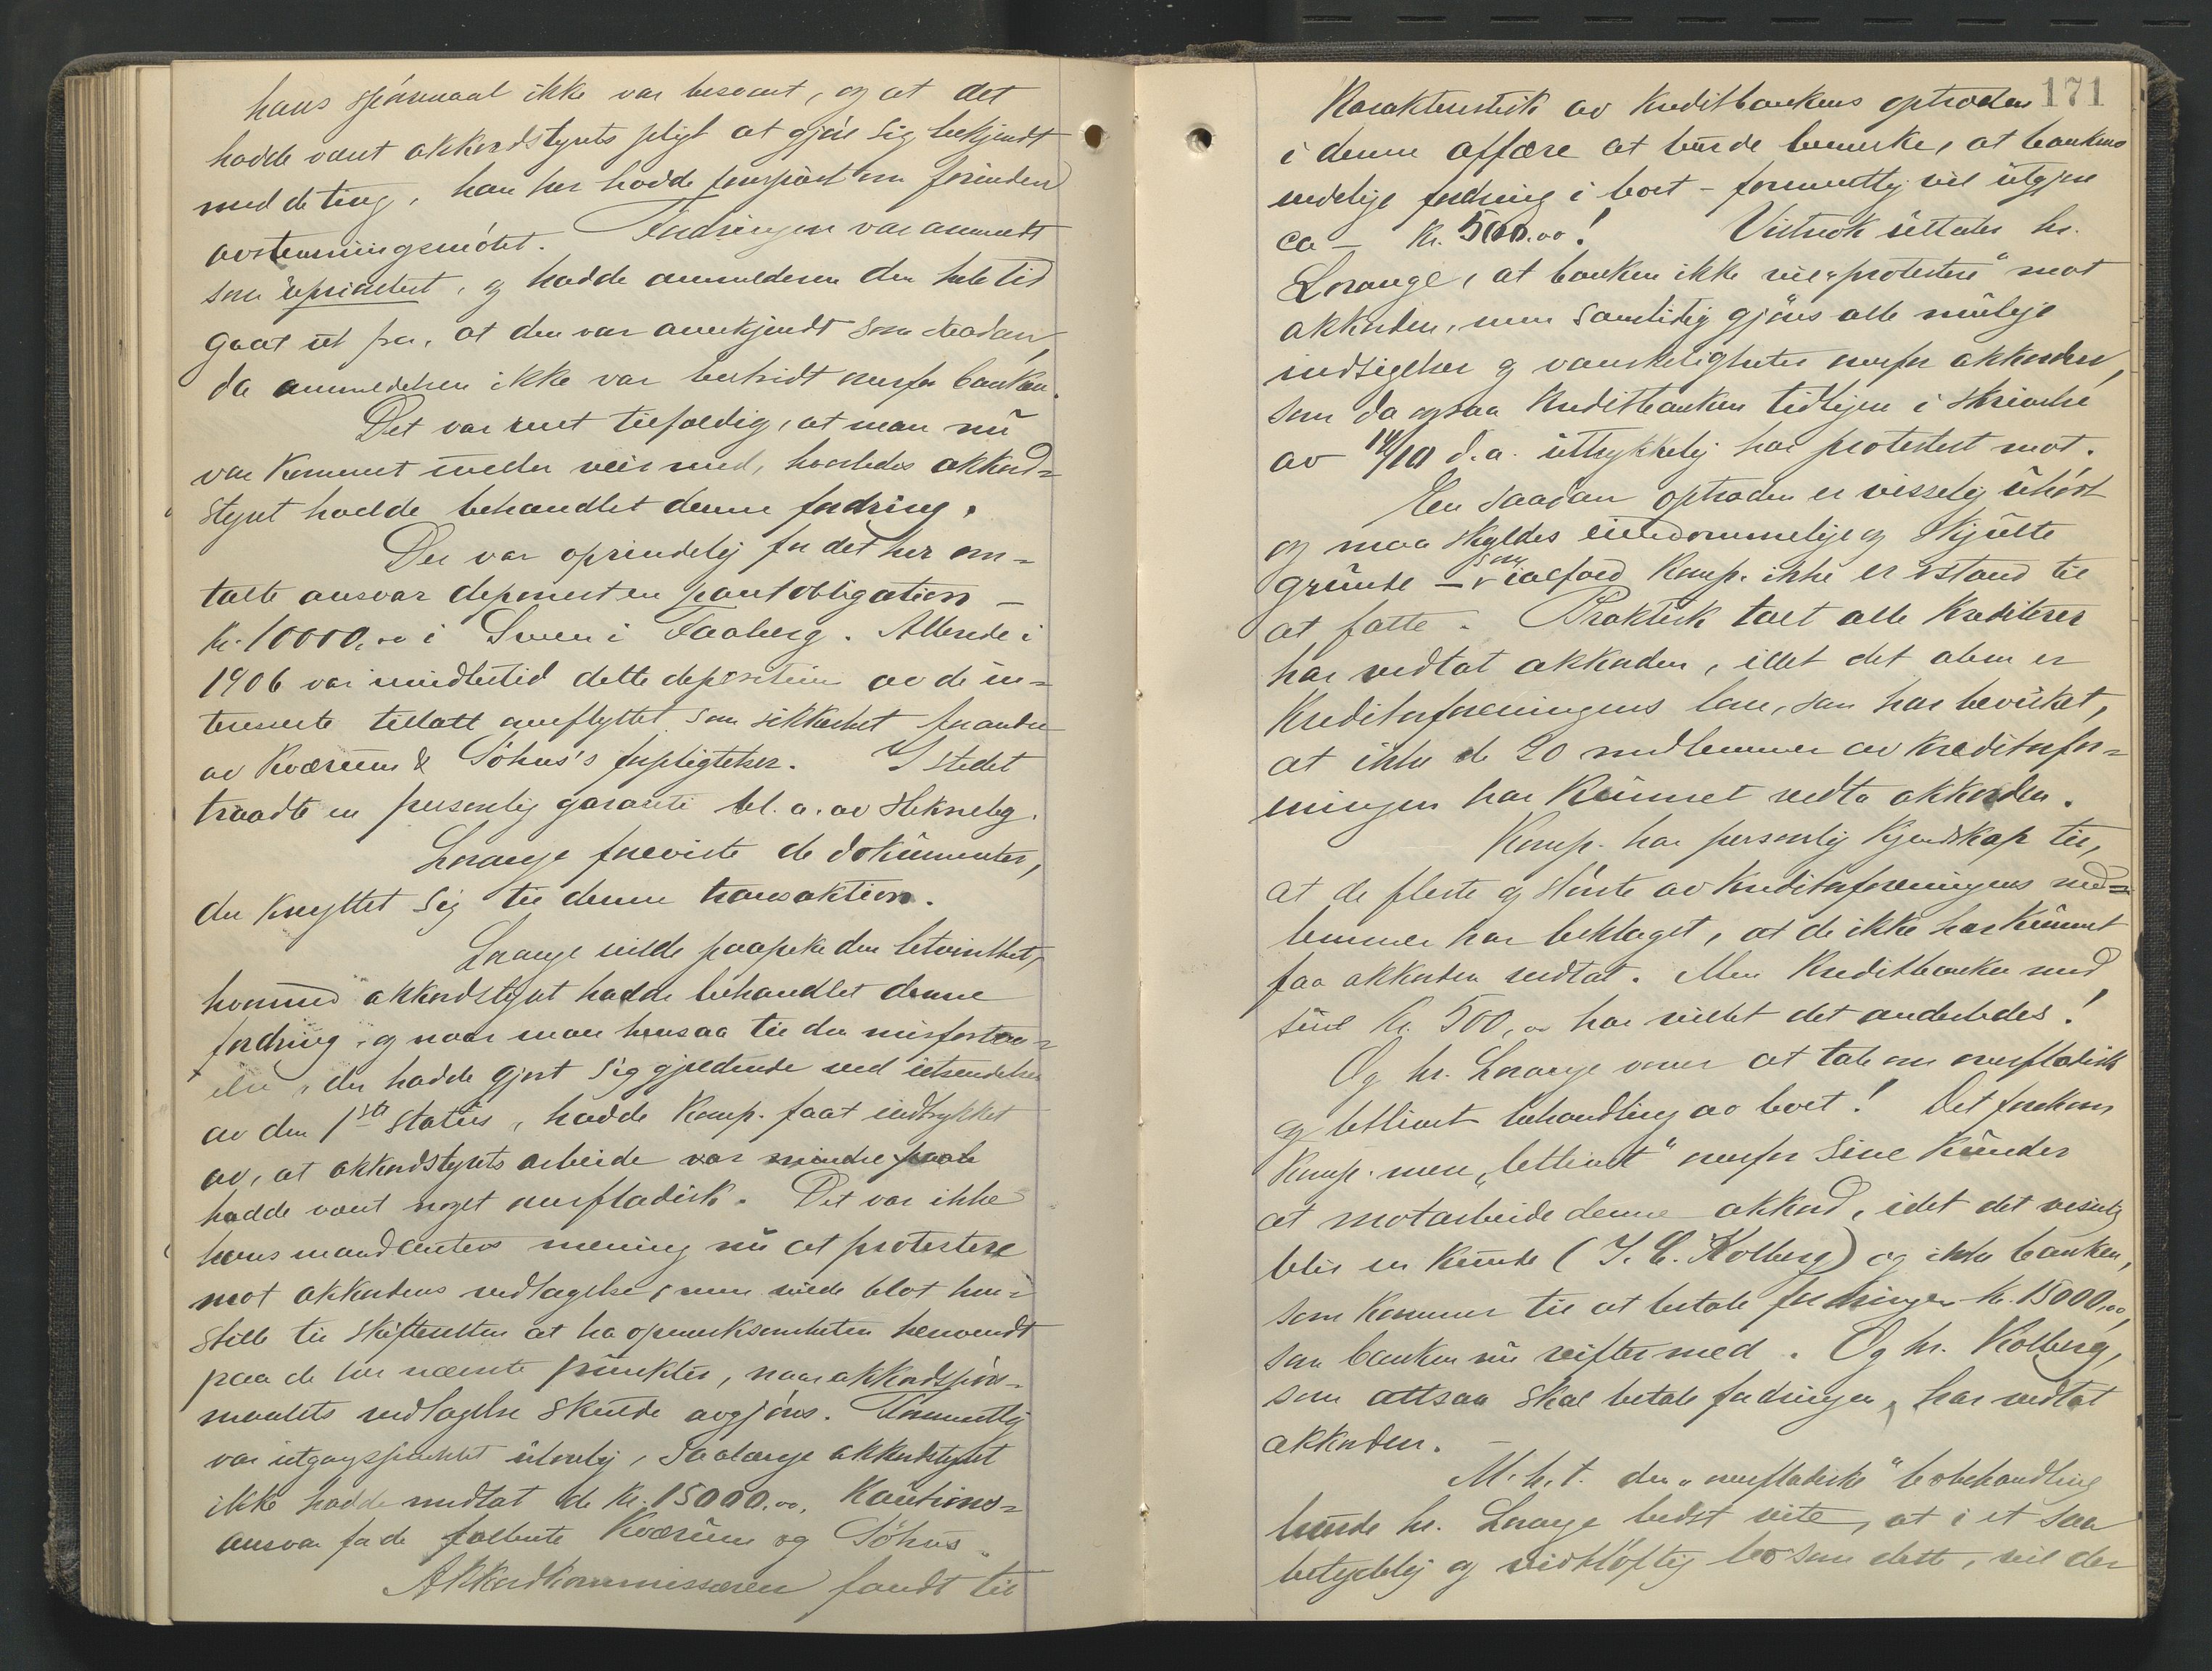 hans spørsmaal ikke var besvart, og at det
hadde været akkordstyrets pligt at gjøre sig bekjendt
med de ting, han her hadde forespurt om forinden
avstemningsmøtet. Fordringen var anmeldt
som uprioritert, og hadde anmelderen den hele tid
gaat ut fra, at den var anerkjendt som saadan,
da anmeldelsen ikke var bestridt overfor banken.
Det var rent tilfældig, at man nu
var kommet under veir med, hvorledes akkord-
styret hadde behandlet denne fordring.
Der var oprindelig for det her om-
talte ansvar deponert en pantobligation –
kr. 10000,00 i Sveen i Faaberg. Allerede i
1906 var imidlertid dette depositum av de in-
teresserte tillatt overflyttet som sikkerhet for andre
av Kværum & Søhus's forpligtelser. I stedet
traadte en personlig garanti bl. a. av
Lorange foreviste de dokumenter,
der knyttet sig til denne transaktion.
Lorange vilde paapeke den letvinthet,
hvormed akkordstyret hadde behandlet denne
fordring, og naar man hensaa til den misforstaa-
else, der hadde gjort sig gjeldende ved utsendelsen
av den 1ste status, hadde komp. faat indtrykket
av, at akkordstyrets arbeide var mindre paal
hadde vært noget overfladisk. Det var ikke
hans mandanters mening nu at protestere
mot akkordens vedtagelse, men vilde blot hen-
stille til skifteretten at ha opmerksomheten henvendt
paa de her nævnte punkter, naar akkordspørs-
maalets vedtagelse skulde avgjøres. Formentlig
var utgangspunktet ulovlig, saalænge akkordstyret
ikke hadde medtat de kr. 15000,00, kautions-
ansvar for de fallerte Kværum og Søhus.
Akkordkommissæren fandt til
171
Karakteristisk av kreditbankens optræden
i denne affære at burde bemerke, at bankens
endelige fordring i boet – formentlig vil utgjøre
ca – kr. 500.00! Vistnok uttaler hr.
Lorange, at banken ikke vil „protestere" mot
akkorden, men samtidig gjøres alle mulige
indsigelser og vanskeligheter overfor akkorden,
som da ogsaa kreditbanken tidligere i skrivelse
av 14/10 d.a. uttrykkelig har protestert mot.
En saadan optræden er visselig uhørt
og maa skyldes eiendommelige og skjulte
grunde – som ialfald komp. ikke er istand til
at fatte. Praktisk talt alle kreditorer
har vedtat akkorden, idet det alene er
Kreditorforeningens love, som har bevirket,
at ikke de 20 medlemmer av kreditorfor-
eningen har kunnet vedta akkorden.
Komp. har personlig kjendskap til,
at de fleste og største av kreditorforeningens med-
lemmer har beklaget, at de ikke har kunnet
faa akkorden vedtat. Men Kreditbanken med
sine kr. 500,00 har villet det anderledes!
Og hr. Lorange vover at tale om overfladisk
og letvint behandling av boet! Det forekom
komp. mere „letvint" overfor sine kunder
at motarbeide denne akkord, idet det visselig
blir en kunde (J. C. Kolberg) og ikke banken,
som kommer til at betale fordringen kr. 15000,00,
som banken nu vifter med. Og hr. Kolberg,
som altsaa skal betale fordringen, har vedtat
akkorden. –
M. h. t. den „overfladiske" bobehandling
burde hr. Lorange bedst vite, at i et saa
betydelig og vidtløftig bo som dette, vil der